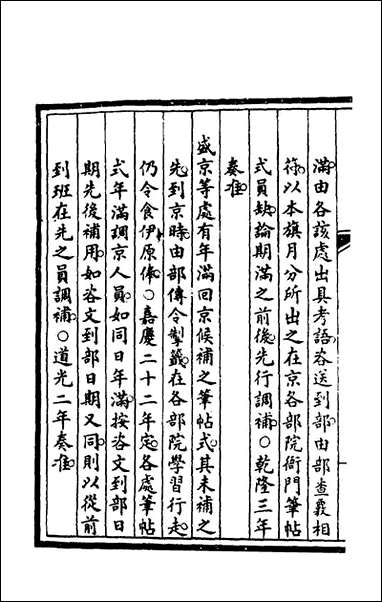 滿由各該處出具考語咨送到部由部查覈相
符以本旗月分所出之在京各部院衙門筆帖
式員缺論期滿之前後先行調補○乾隆三年
奏准
盛京等處有年滿回京候補之筆帖式其未補之
先到京時由部傳令掣籤在各部院學習行走
仍令食伊原俸○嘉慶二十二年定各處筆帖
式年滿調京人員如同日年滿按咨文到部日
期先後補用如咨文到部日期又同則以從前
到班在先之員調補○道光二年奏准